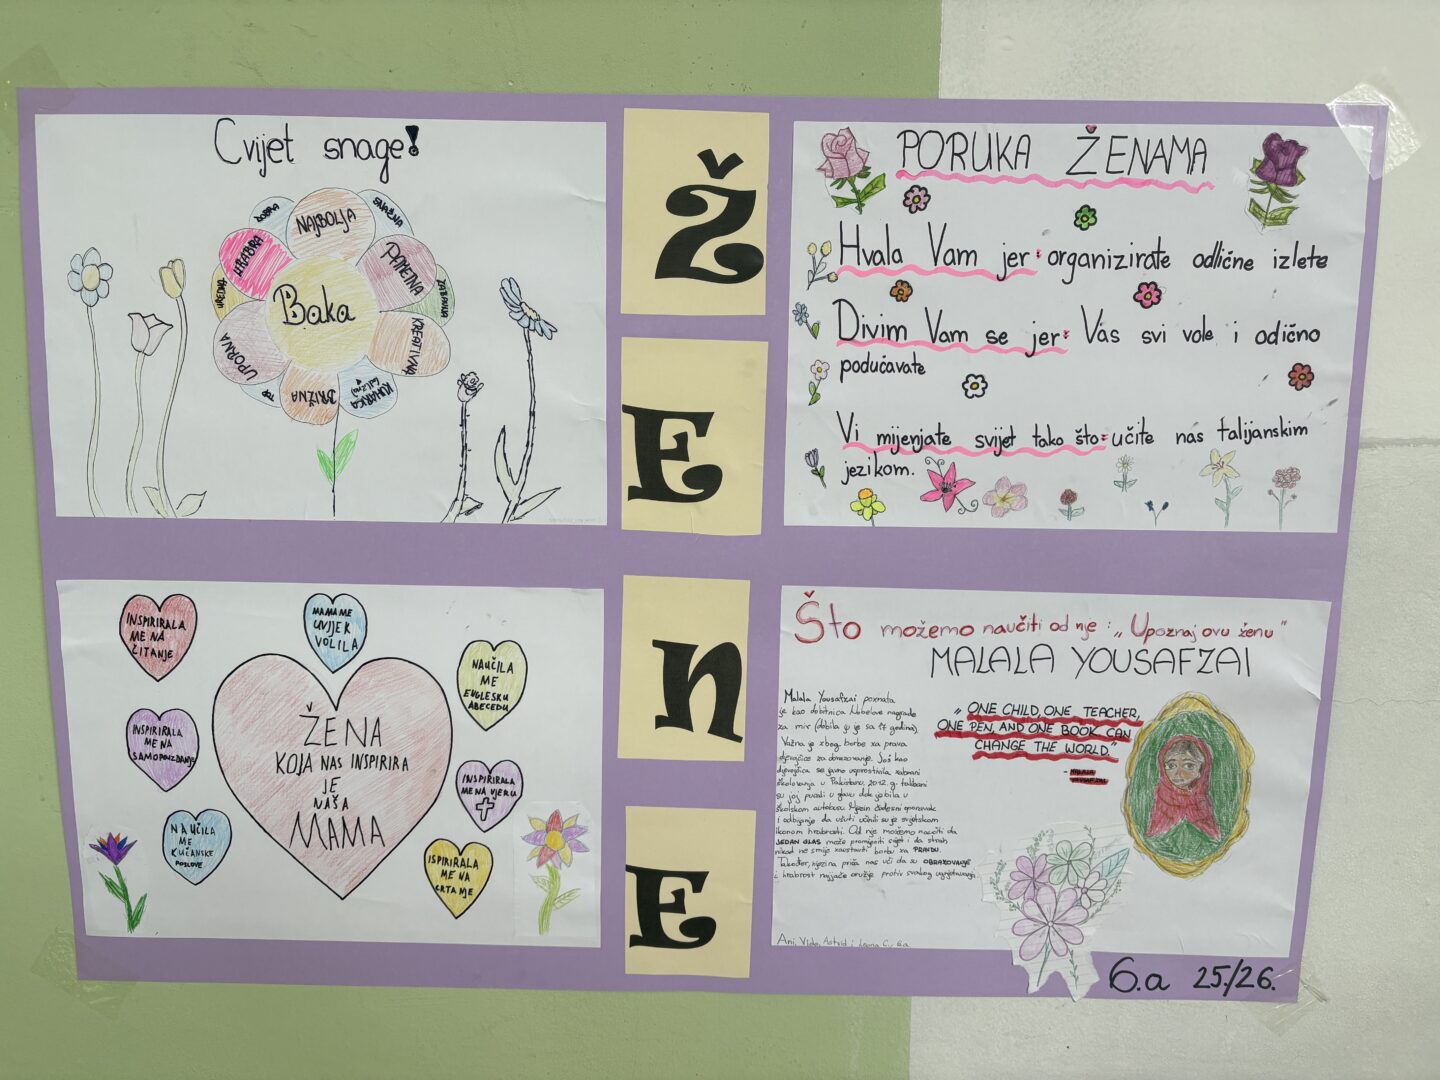 Cvijet snage!
DOBRA
NAJBOLJA
SNAŽNA
HRABRA
PAMETNA
UREDNA
Baka
ZABAVNA
UPORNA
KREATIVNA
TOP
BRIŽNA
KUHARICA
Ž
E
n
E
PORUKA ŽENAMA
Hvala Vam jer: organizirate odlične izlete
Divim Vam se jer: Vas svi vole i odično
podučavate
Vi mijenjate svijet tako što: učite nas talijanskim
jezikom.
INSPIRIRALA
ME NA
ČITANJE
MAMA ME
UVIJEK
VOLILA
NAUČILA
ME
ENGLESKU
ABECEDU
INSPIRIRALA
ME NA
SAMOPOUZDANJE
ŽENA
KOJA NAS INSPIRIRA
JE
NAŠA
MAMA
INSPIRIRALA
ME NA VJERU
NAUČILA
ME
KUĆANSKE
POSLOVE
ISPIRIRALA
ME NA
CRTANJE
Što možemo naučiti od nje: „Upoznaj ovu ženu"
MALALA YOUSAFZAI
„ONE CHILD, ONE TEACHER,
ONE PEN, AND ONE BOOK CAN
CHANGE THE WORLD."
- MALALA
YOUSAFZAI
Malala Yousafzai poznata
je kao dobitnica Nobelove nagrade
za mir (dobila ju je sa 17 godina).
Važna je zbog borbe za prava
djevojčica za obrazovanje. Još kao
djevojčica se javno usprostivila zabrani
školovanja u Pakistanu. 2012. g. talibani
su joj pucali u glavu dok je bila u
školskom autobusu. Njezin čudesni oporavak
i odbijanje da ušuti učinili su je svjetskom
ikonom hrabrosti. Od nje možemo naučiti da
JEDAN GLAS može promijeniti svijet i da strah
nikad ne smije zaustaviti borbu za PRAVDU.
Također, njezina priča nas uči da su OBRAZOVANJE
i hrabrost najjače oružje protiv svakog ugnjetavanja.
Ani, Vida, Astrid i Leona C., 6.a
6.a 25./26.